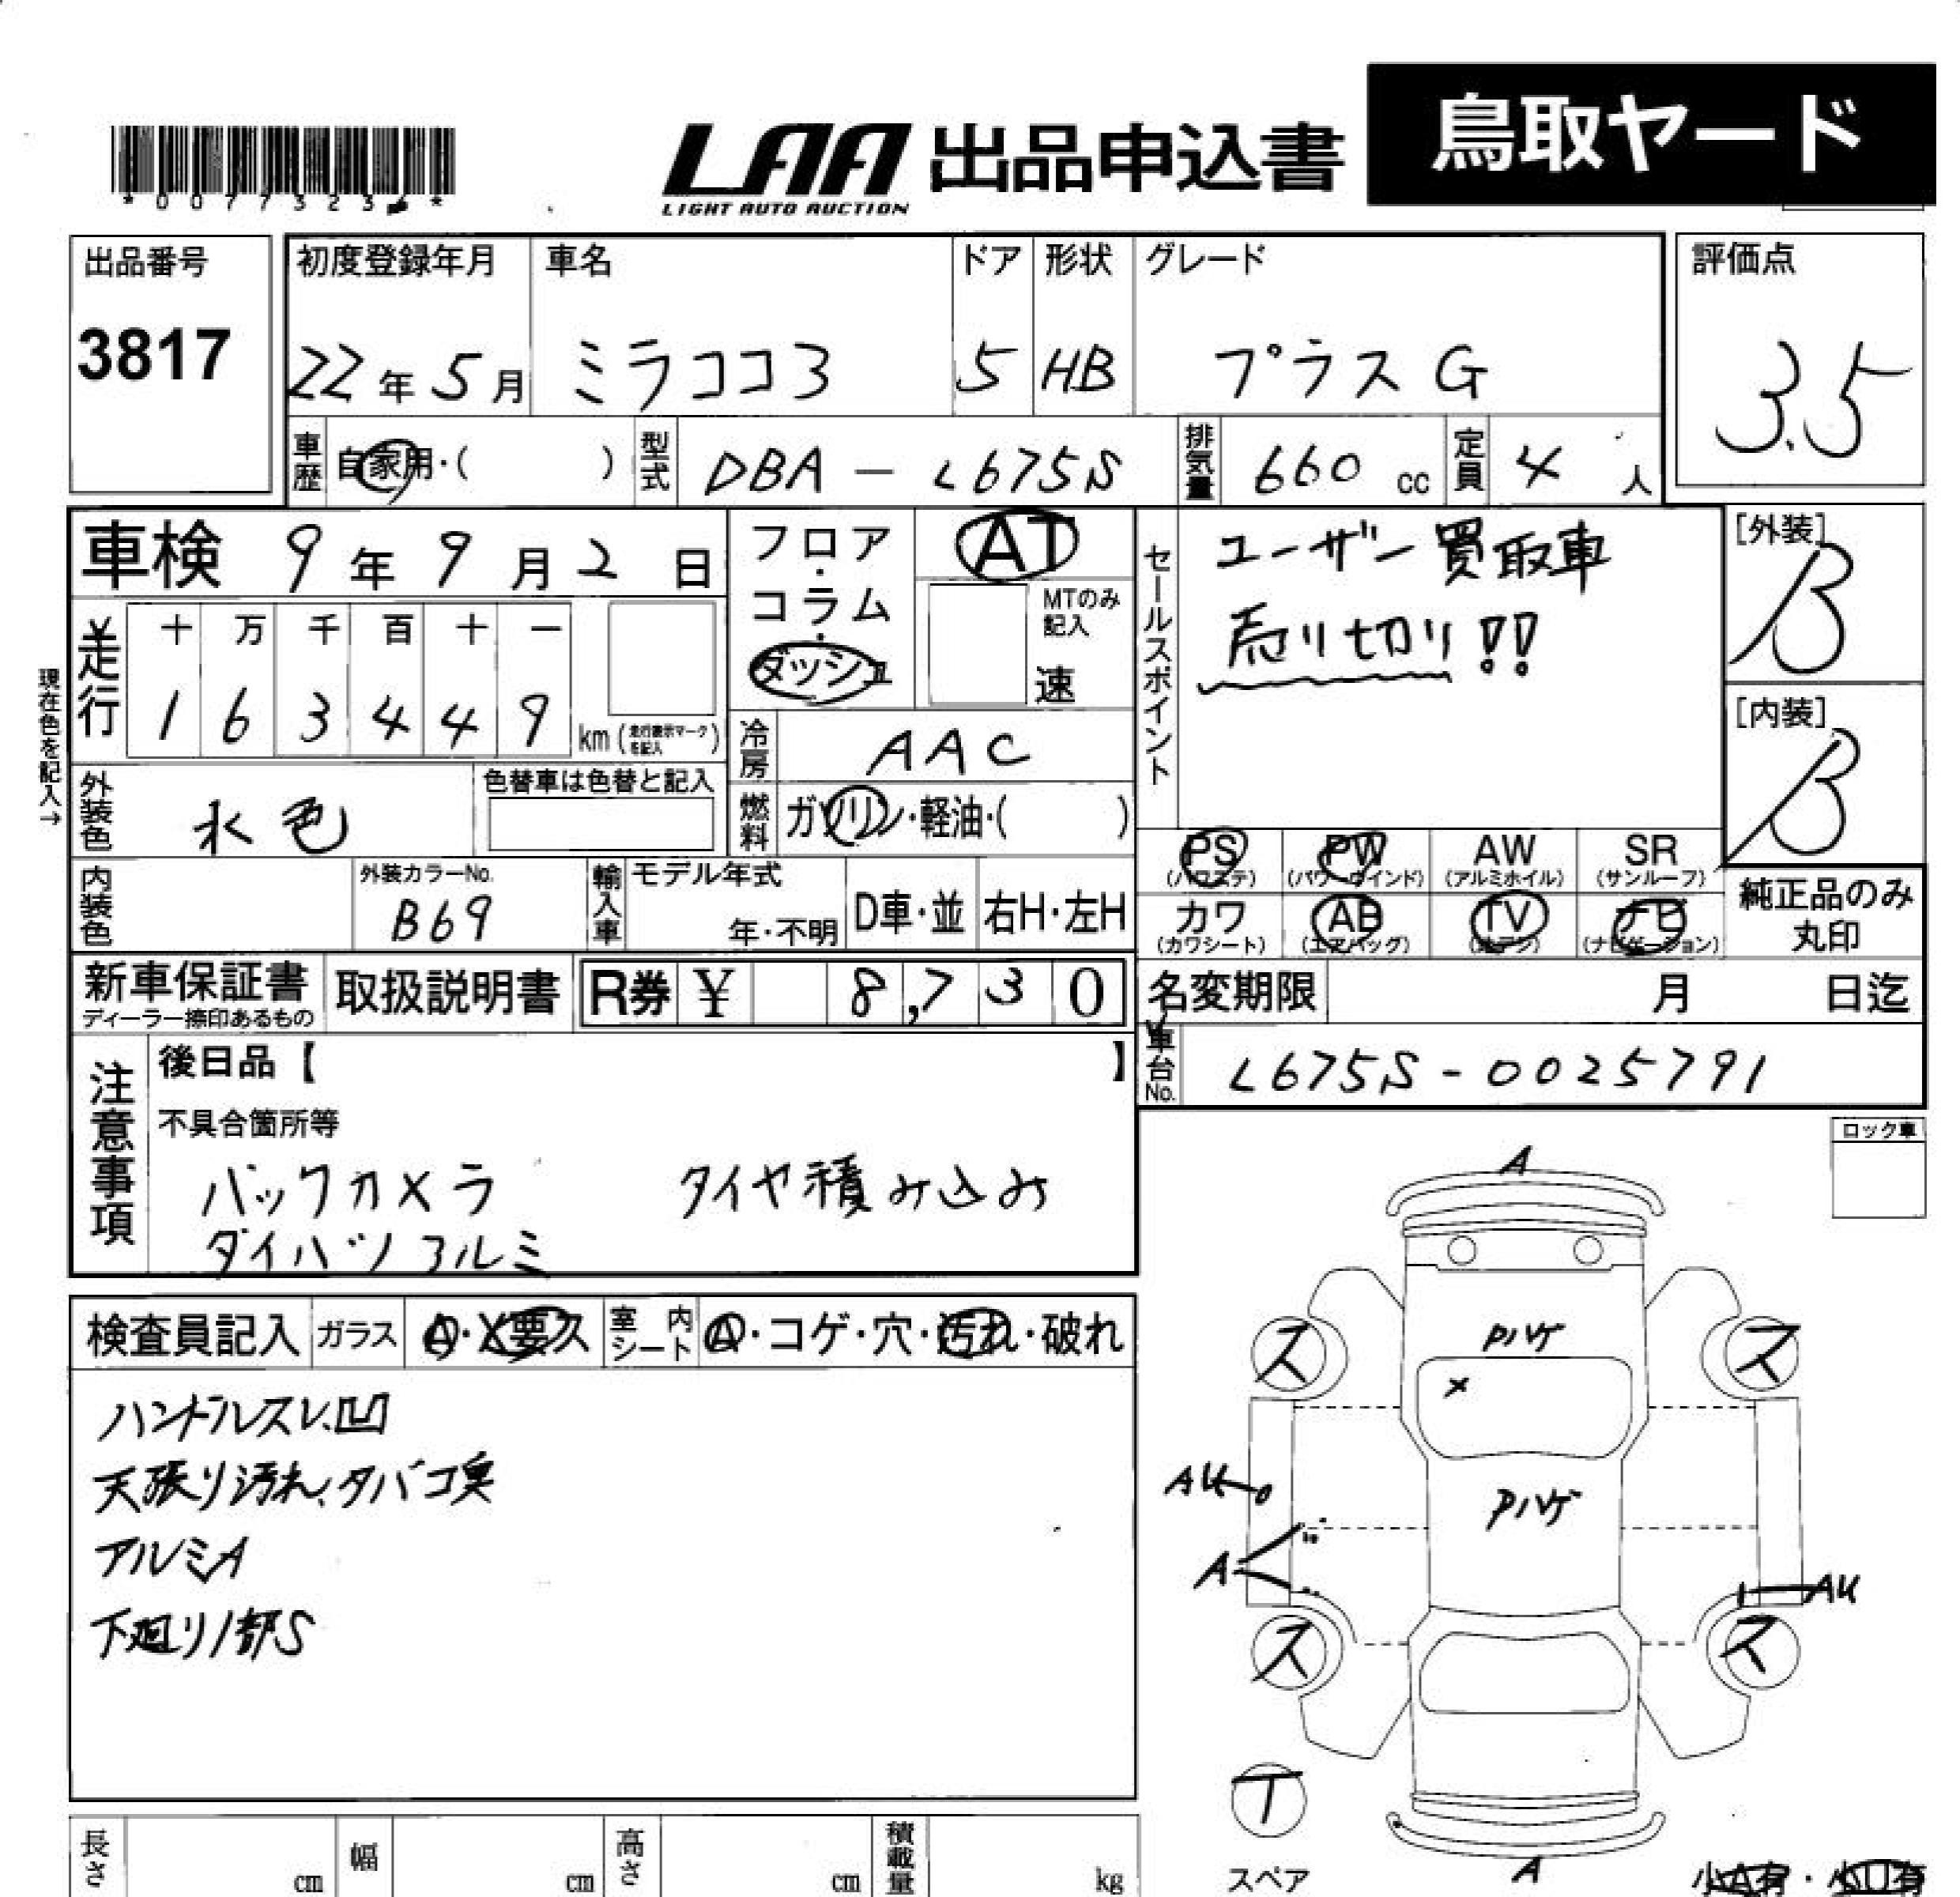 鳥取ヤード
LAA 出品申込書
LIGHT AUTO AUCTION
出品番号
3817
初度登録年月
22年5月
車名
ミラココ3
ドア
5
形状
HB
グレード
プラスG
評価点
3.5
車歴
自家用・( )
型式
DBA - L675S
排気量
660 cc
定員
4 人
車検 9年9月2日
フロア・コラム・ダッシュ
AT
MTのみ記入
速
セールスポイント
ユーザー買取車
売り切り!!
[外装]
B
[内装]
B
現在色を記入→
走行
十 万 千 百 十 一
1 6 3 4 4 9 km (走行表示マークを記入)
冷房
AAC
外装色
水色
色替車は色替と記入
燃料
ガソリン・軽油・( )
PS
(パワステ)
PW
(パワーウインド)
AW
(アルミホイル)
SR
(サンルーフ)
カワ
(カワシート)
AB
(エアバッグ)
TV
(地デジ)
ナビ
(ナビゲーション)
純正品のみ
丸印
内装色
外装カラーNo.
B69
輸入車
モデル年式
年・不明
D車・並
右H・左H
新車保証書
ディーラー捺印あるもの
取扱説明書
R券 ¥ 8,730
名変期限
月 日迄
車台No.
L675S-0025791
注意事項
後日品【 】
不具合箇所等
バックカメラ タイヤ積み込み
ダイハツアルミ
ロック車
検査員記入
ガラス
A・X要ス
室内シート
A・コゲ・穴・汚れ・破れ
ハンドルスレ、凹
天張り汚れ、タバコ臭
アルミA
下廻り1部S
A
Pハゲ
ス
ス
X
AU
Pハゲ
A
AU
ス
ス
T
スペア
A
長さ
cm
幅
cm
高さ
cm
積載量
kg